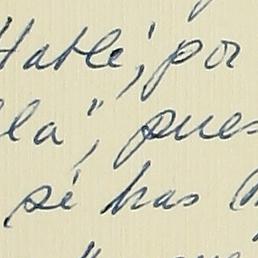 Hablé; por
lla", pues
sé has